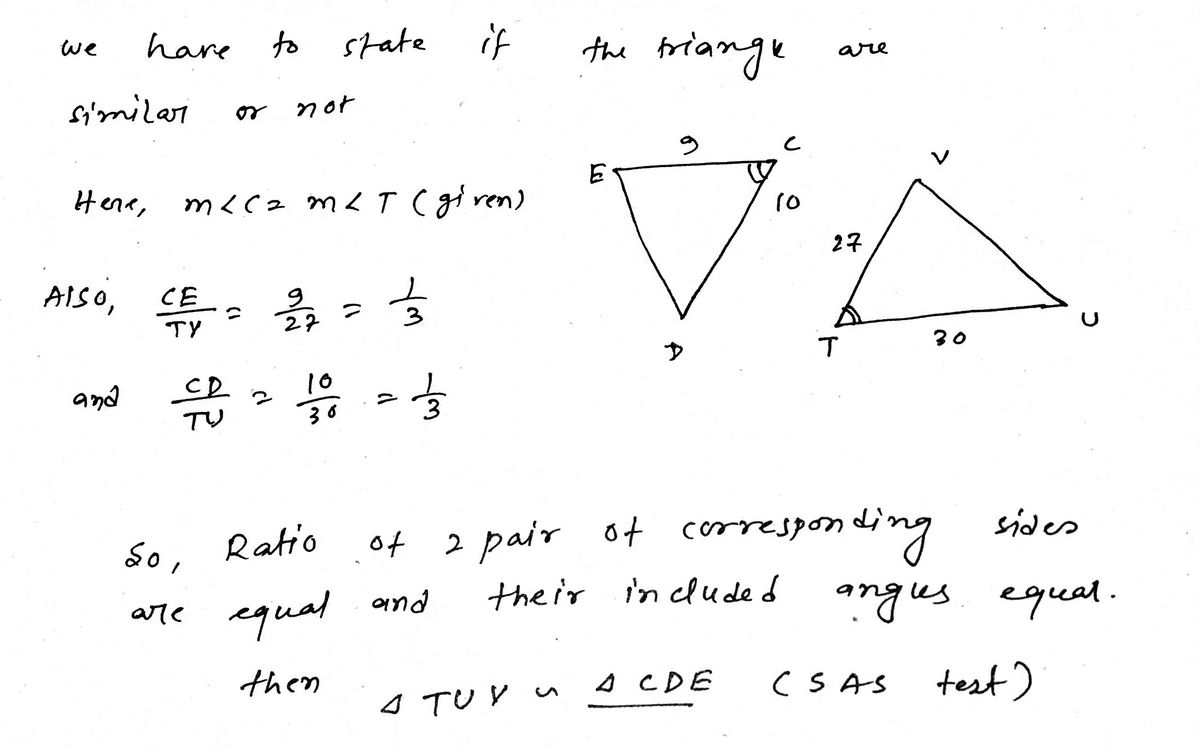 we have to state if the triangle are
similar or not
Here, m<C = m<T (given)
Also, CE/TV = 9/27 = 1/3
and CD/TU = 10/30 = 1/3
E 9 C
10
D
V
27
T 30 U
So, Ratio of 2 pair of corresponding sides
are equal and their included angles equal.
then △TUV ~ △CDE (SAS test)